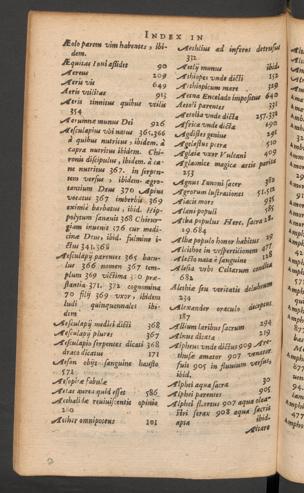 INDEX IN
Æolo parem vim habentes, ibi-
dem.
Æquitas Ioui assidet 90
Aereus 209
Aeris vis 649
Aeris vtilitas 913
Aeris tinnitus quibus vtilis
354
Aerumna mundi Dea 926
Æsculapius vbi natus 365.366
à quibus nutritus, ibidem. à
capra nutritus ibidem. Chi-
ronis discipulus, ibidem. à ca-
ne nutritus 367. in serpen-
tem versus, ibidem.
rantium Deus 370
vocatus 367 imberbis 369
eximiè barbatus, ibid. Hip-
polytum sanauit 368 Chirur-
giam inuenit 176 cur medi-
cinæ Deus, ibid. fulmine i-
ctus 341.368
Æsculapij parentes 365 bacu-
lus 366 nomen 367 tem-
plum 369 victima
stantia 371. 372 cognomina
70 filij 369 vxor, ibidem
ludi quinquennales ibi-
dem
Æsculapij medici dicti 368
Æsculapij plures 367
Æsculapio serpentes dicati 368
draco dicatus 171
Æson obijt sanguine hausto
572
Æsopicæ fabulæ
Æstas aurea quid esset 586
Æthalidæ reuiuiscentis opinio
Æther omnipotens 101
Æthilius ad inferos detrusus
312
Aetij munus ibid.
Æthiopes vnde dicti 152
Æthiopicum mare 329
Aetna Encelado impositus 640
Aetoli parentes 331
Aetolia vnde dicta 257.332
Africa vnde dicta 690
Agdistes genius 291
Agelastus petra 510
Aglaia vxor Vulcani 409
Aglaonice magica artis perita
253
Agnus Iunoni sacer 382
Agrorum lustrationes 51.512
Aiacis mors 935
Alani populi 585
Alba populus Herc. sacra 28.
29.684
Alba populo homer habitus 29
Alcithoe in vespertilionem 477
Alecto nata è sanguine 128
Alesia vrbs Celtarum condita
682
Alethiæ seu veritatis delubrum
234
Alexander oraculo deceptus
187
Allium laribus sacrum 294
Alnus dicata 219
Alpheus vnde dictus 909 Are-
thusæ amator 907 vanator
fuit 905 in fluuium versus,
ibid.
Alphei aqua sacra 30
Alphei parentes 905
Alphei fluxus 907 aqua olea-
stri ferax 908 aqua sacris
apta ibid.